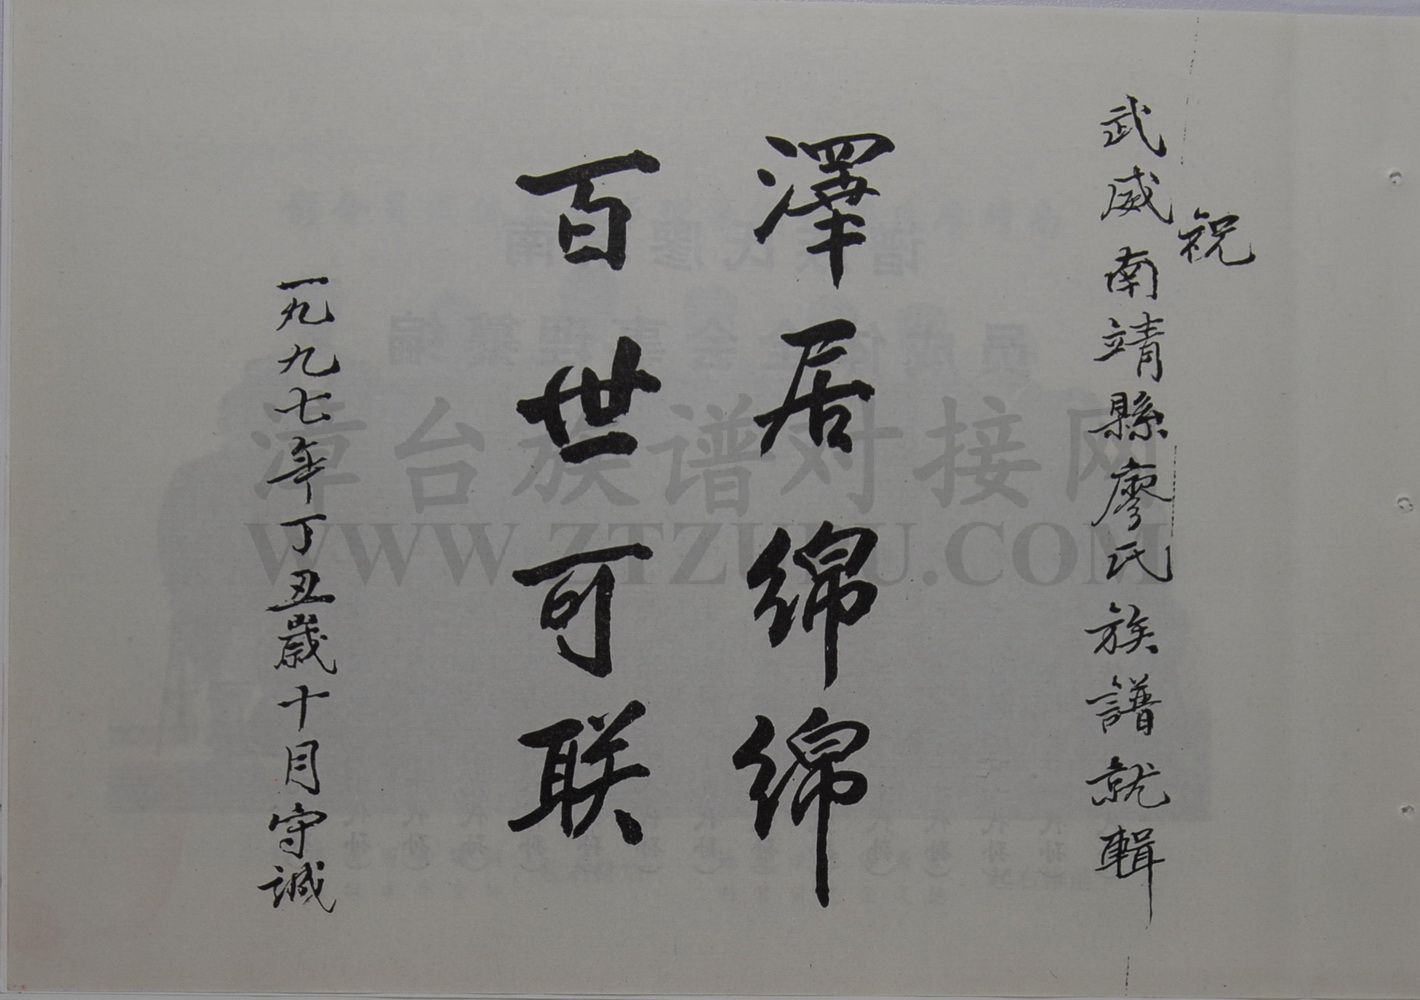 祝
武威南靖縣廖氏族譜就輯
澤居綿綿
百世可联
一九九七年丁丑歲十月守誠
漳台族谱对接网
WWW.ZTZUPU.COM